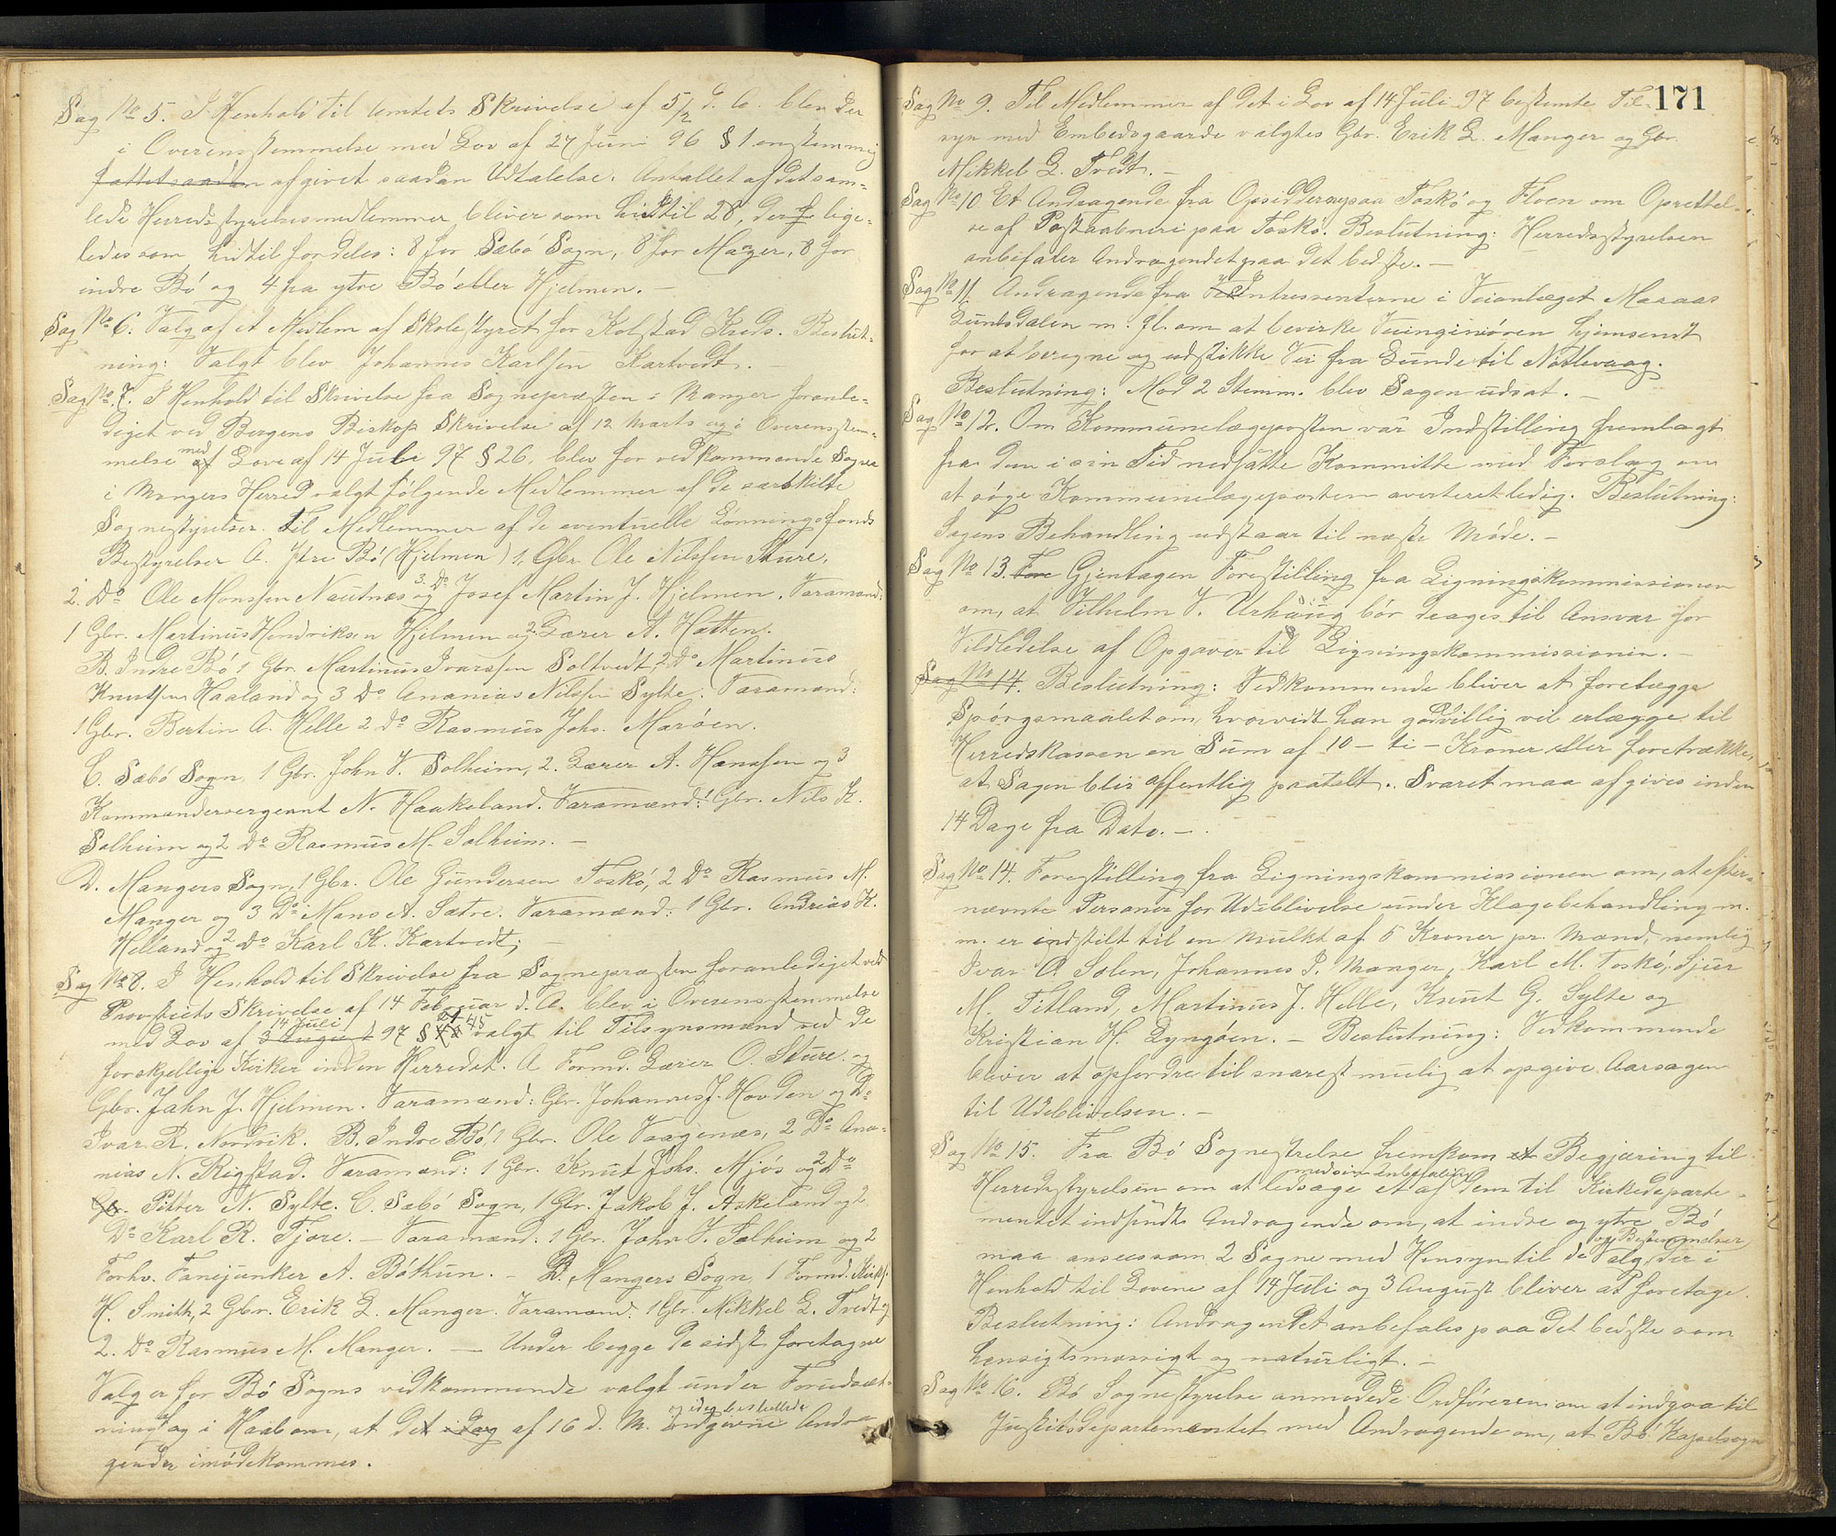 Sag No 5. I Henhold til Amtets Skrivelse af 5/2 d. A. blev der
i Overensstemmelse med Lov af 27 Juni 96 § 1 enstemmig
fattet saadan afgivet saadan Udtalelse: Antallet af det sam-
lede Herredsstyrelsesmedlemmer bliver som hidtil 28, der lige-
ledes som hidtil fordeles: 8 for Sæbö Sogn, 8 for Manger, 8 for
indre Bö og 4 fra ytre Bö eller Hjelmen. —
Sag No 6. Valg af et Medlem af Skolestyret for Kolstad Kreds. Beslut-
ning: Valgt blev Johannes Karlsen Kartvedt. —
Sag No 7. I Henhold til Skrivelse fra Sognepræsten i Manger foranle-
diget ved Bergens Biskop Skrivelse af 12 Marts og i Overensstem-
melse med Love af 14 Juli 97 § 26, blev for vedkommende Sogne
i Mangers Herred valgt følgende Medlemmer af de særskilte
Sognestyrelser. Til Medlemmer af de eventuelle Lønningsfonds
Bestyrelser A. Ytre Bö (Hjelmen) 1, Gbr. Ole Nilssen Sture,
2. Do Ole Monssen Nautnes og 3. Do Josef Martin J. Hjelmen. Varamænd:
1 Gbr. Martinus Hendriksen Hjelmen og 2 Lærer A. Hatten.
B. Indre Bö 1 Gbr. Martinus Ivarssen Soltvedt, 2 Do Martinus
Knutssen Haaland og 3 Do Ananias Nilssen Sylte. Varamænd:
1 Gbr. Bertin A. Helle 2 Do Rasmus Johs. Maröen.
C. Sæbö Sogn, 1 Gbr. John V. Solheim, 2. Lærer A. Hanssen og 3
Kommandersergeant N. Haakeland. Varamænd: 1 Gbr. Nils K.
Solheim og 2 Do Rasmus M. Solheim. —
D. Mangers Sogn, 1 Gbr. Ole Gundersen Toskö, 2 Do Rasmus M.
Manger og 3 Do Mons A. Sætre. Varamænd: 1 Gbr. Andreas K.
Helland og 2 Do Karl K. Kartvedt; —
Sag No 8. I Henhold til Skrivelse fra Sognepræsten foranlediget ved
Provstiets Skrivelse af 14 Februar d. A. blev i Overensstemmelse
med Lov af 3 August 14 Juli 97 § 45 valgt til Tilsynsmænd ved de
forskjellige Kirker inden Herredet. A Formd. Lærer O. Sture og
Gbr. Jahn J. Hjelmen. Varamænd: Gbr. Johannes J. Hovden og Do
Ivar R. Nordvik. B. Indre Bö, 1 Gbr. Ole Vaagenæs, 2 Do Ana-
nias N. Rigstad. Varamænd: 1 Gbr. Knut Johs. Mjös og 2 Do
Gbr. Pitter N. Sylte. C. Sæbö Sogn, 1 Gbr. Jakob J. Askeland og 2
Do Karl R. Fjore. — Varamænd: 1 Gbr. John V. Solheim og 2
Forhv. Fanejunker A. Böthun. — D, Mangers Sogn, 1 Formd.
H. Smith, 2 Gbr. Erik L. Manger. Varamænd: 1 Gbr. Mikkel L. Tvedt og
2. Do Rasmus M. Manger. — Under begge de sidst foretagne
Valg er for Bö Sogns vedkommende valgt under Forudsæt-
ning og i Haab om, at det i Dag af 16 d. M. indgivne og idag besluttede Andra-
gender imødekommes.
171
Sag No 9. Til Medlemmer af det i Lov af 14 Juli 97 bestemte Til-
syn med Embedsgaarde valgtes Gbr. Erik L. Manger og Gbr.
Mikkel L. Tvedt. —
Sag No 10 Et Andragende fra Opsidderne paa Toskö og Floen om Oprettel-
se af Postaabneri paa Toskö. Beslutning: Herredsstyrelsen
anbefaler Andragendet paa det bedste. —
Sag No 11 Andragende fra Intressenterne i Veianlæget Maraas
Lundsdalen m. fl. om at bevirke Veiingeniören hjemsendt
for at beregne og udstikke Vei fra Lunde til Nötlevaag.
Beslutning: Mod 2 Stemm. blev Sagen udsat. —
Sag No 12. Om Kommunelægeposten var Indstilling fremlagt
fra den i sin Tid nedsatte Kommitte med Forslag om
at söge Kommunelægeposten averteret ledig. Beslutning:
Sagens Behandling udstaar til næste Møde. —
Sag No 13. Fore Gjentagen Forestilling fra Ligningskommissionen
om, at Vilhelm V. Urhaug bör drages til Ansvar for
Vildledelse af Opgaver til Ligningskommissionen. —
Sag No 14. Beslutning: Vedkommende bliver at forelægge
Spörgsmaalet om, hvorvidt han godvillig vil erlægge til
Herredskassen en Sum af 10 – ti – Kroner eller foretrække,
at Sagen blir offentlig paatalt. Svaret maa afgives inden
14 Dage fra Dato. —
Sag No 14. Forestilling fra Ligningskommissionen om, at efter-
nævnte Personer for Udeblivelse under Klagebehandling m.
m. er indstilt til en Mulkt af 5 Kroner pr. Mand, nemlig
Ivar O. Solen, Johannes P. Manger, Karl M. Toskö, Sjur
M. Titland, Martinus J. Helle, Knut G. Sylte og
Kristian H. Lyngöen. — Beslutning: Vedkommende
bliver at opfordre til snarest mulig at opgive Aarsagen
til Udeblivelsen. —
Sag No 15. Fra Bö Sognestyrelse fremkom et Begjæring til
Herredsstyrelsen om at ledsage med sin Anbefaling et af dem til Kirkedeparte-
mentet indsendt Andragende om, at indre og ytre Bö
maa ansees som 2 Sogne med Hensyn til de Valg og Bestemmelser, der i
Henhold til Lovene af 14 Juli og 3 August bliver at foretage.
Beslutning: Andragendet anbefales paa det bedste som
hensigtsmæssigt og naturligt. —
Sag No 16. Bö Sognestyrelse anmodede Ordføreren om at indgaa til
Justitsdepartementet med Andragende om, at Bö Kapelsogn